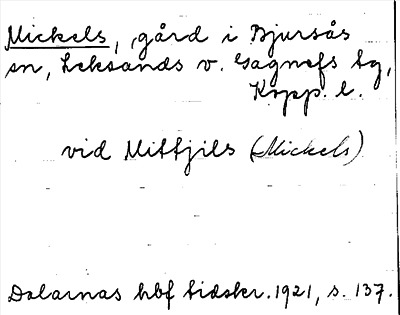 Mickels, gård i Bjursås
sn, Leksands o. Gagnefs tg,
Kopp. l.
vid Mittjils (Mickels)
Dalarnas hbf tidskr. 1921, s. 137.